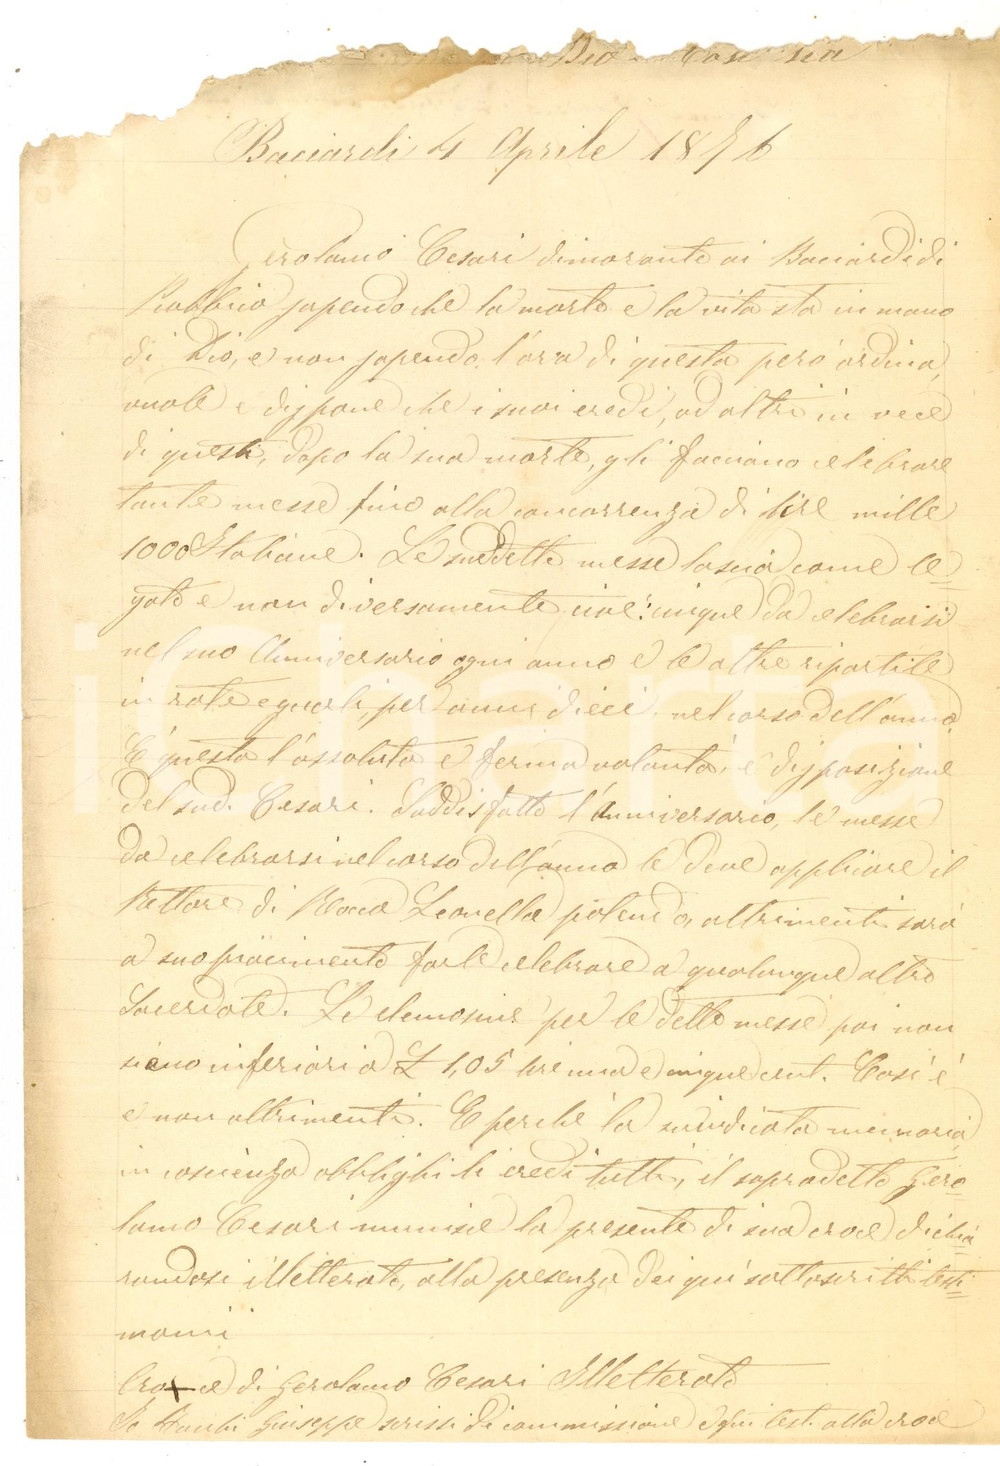 Dio così sia
Bacciardi 4 Aprile 1876
Gerolamo Cesari dimorante ai Bacciardi di
sapendo che la morte e la vita sta in mano
di Dio, e non sapendo l'ora di questa però ordina,
vuole e dispone che i suoi eredi, od altri in vece
di questi, dopo la sua morte, gli facciano celebrare
tante messe fino alla concorrenza di lire mille
1000 Italiane. Le suddette messe lascia come le=
gato e non diversamente cioè: cinque da celebrarsi
nel suo Anniversario ogni anno e le altre ripartite
in rate eguali, per anni dieci nel corso dell'anno.
E questa l'assoluta e ferma volontà, e disposizione
del sud. Cesari. Soddisfatto l'Anniversario, le messe
da celebrarsi nel corso dell'anno le deve applicare il
Rettore di Rocca potendo, altrimenti sarà
a suo piacimento farle celebrare a qualunque altro
Sacerdote. Le elemosine per le dette messe poi non
siano inferiori a £ 1,05 lire una e cinque cent. Così è
e non altrimenti. E perché la suindicata memoria
in coscienza obblighi li eredi tutti, il sopradetto Gero=
lamo Cesari munisce la presente di sua croce dichia=
randosi illetterato, alla presenza dei qui sottoscritti testi=
monii
Cro+ce di Gerolamo Cesari Illetterato
Io Giuseppe scrissi di commissione e fui test. alla croce
ichartа